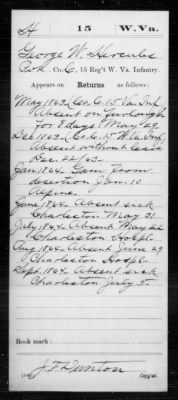 H 15 W. Va.
George W. Hercules
Co. C, 15 Reg't W. Va. Infantry.
Appears on Returns as follows:
May 1863. Co. C. 15 Va. Inf.
Absent on furlough
for 8 days May 29
Dec 1863. Co. C. 15 W. Va. Inf.
Absent without leave
Dec. 22/63.
Jan 1864. Gain from
desertion Jan. 10
Alpine.
June 1864. Absent sick
Charleston May 31
July 1864. Absent May 22
Charleston Hospl.
Aug 1864. Absent June 29
Charleston Hospl.
Sept 1864. Absent sick
Charleston July 5.
Book mark:
J F Dunton
Copyist.